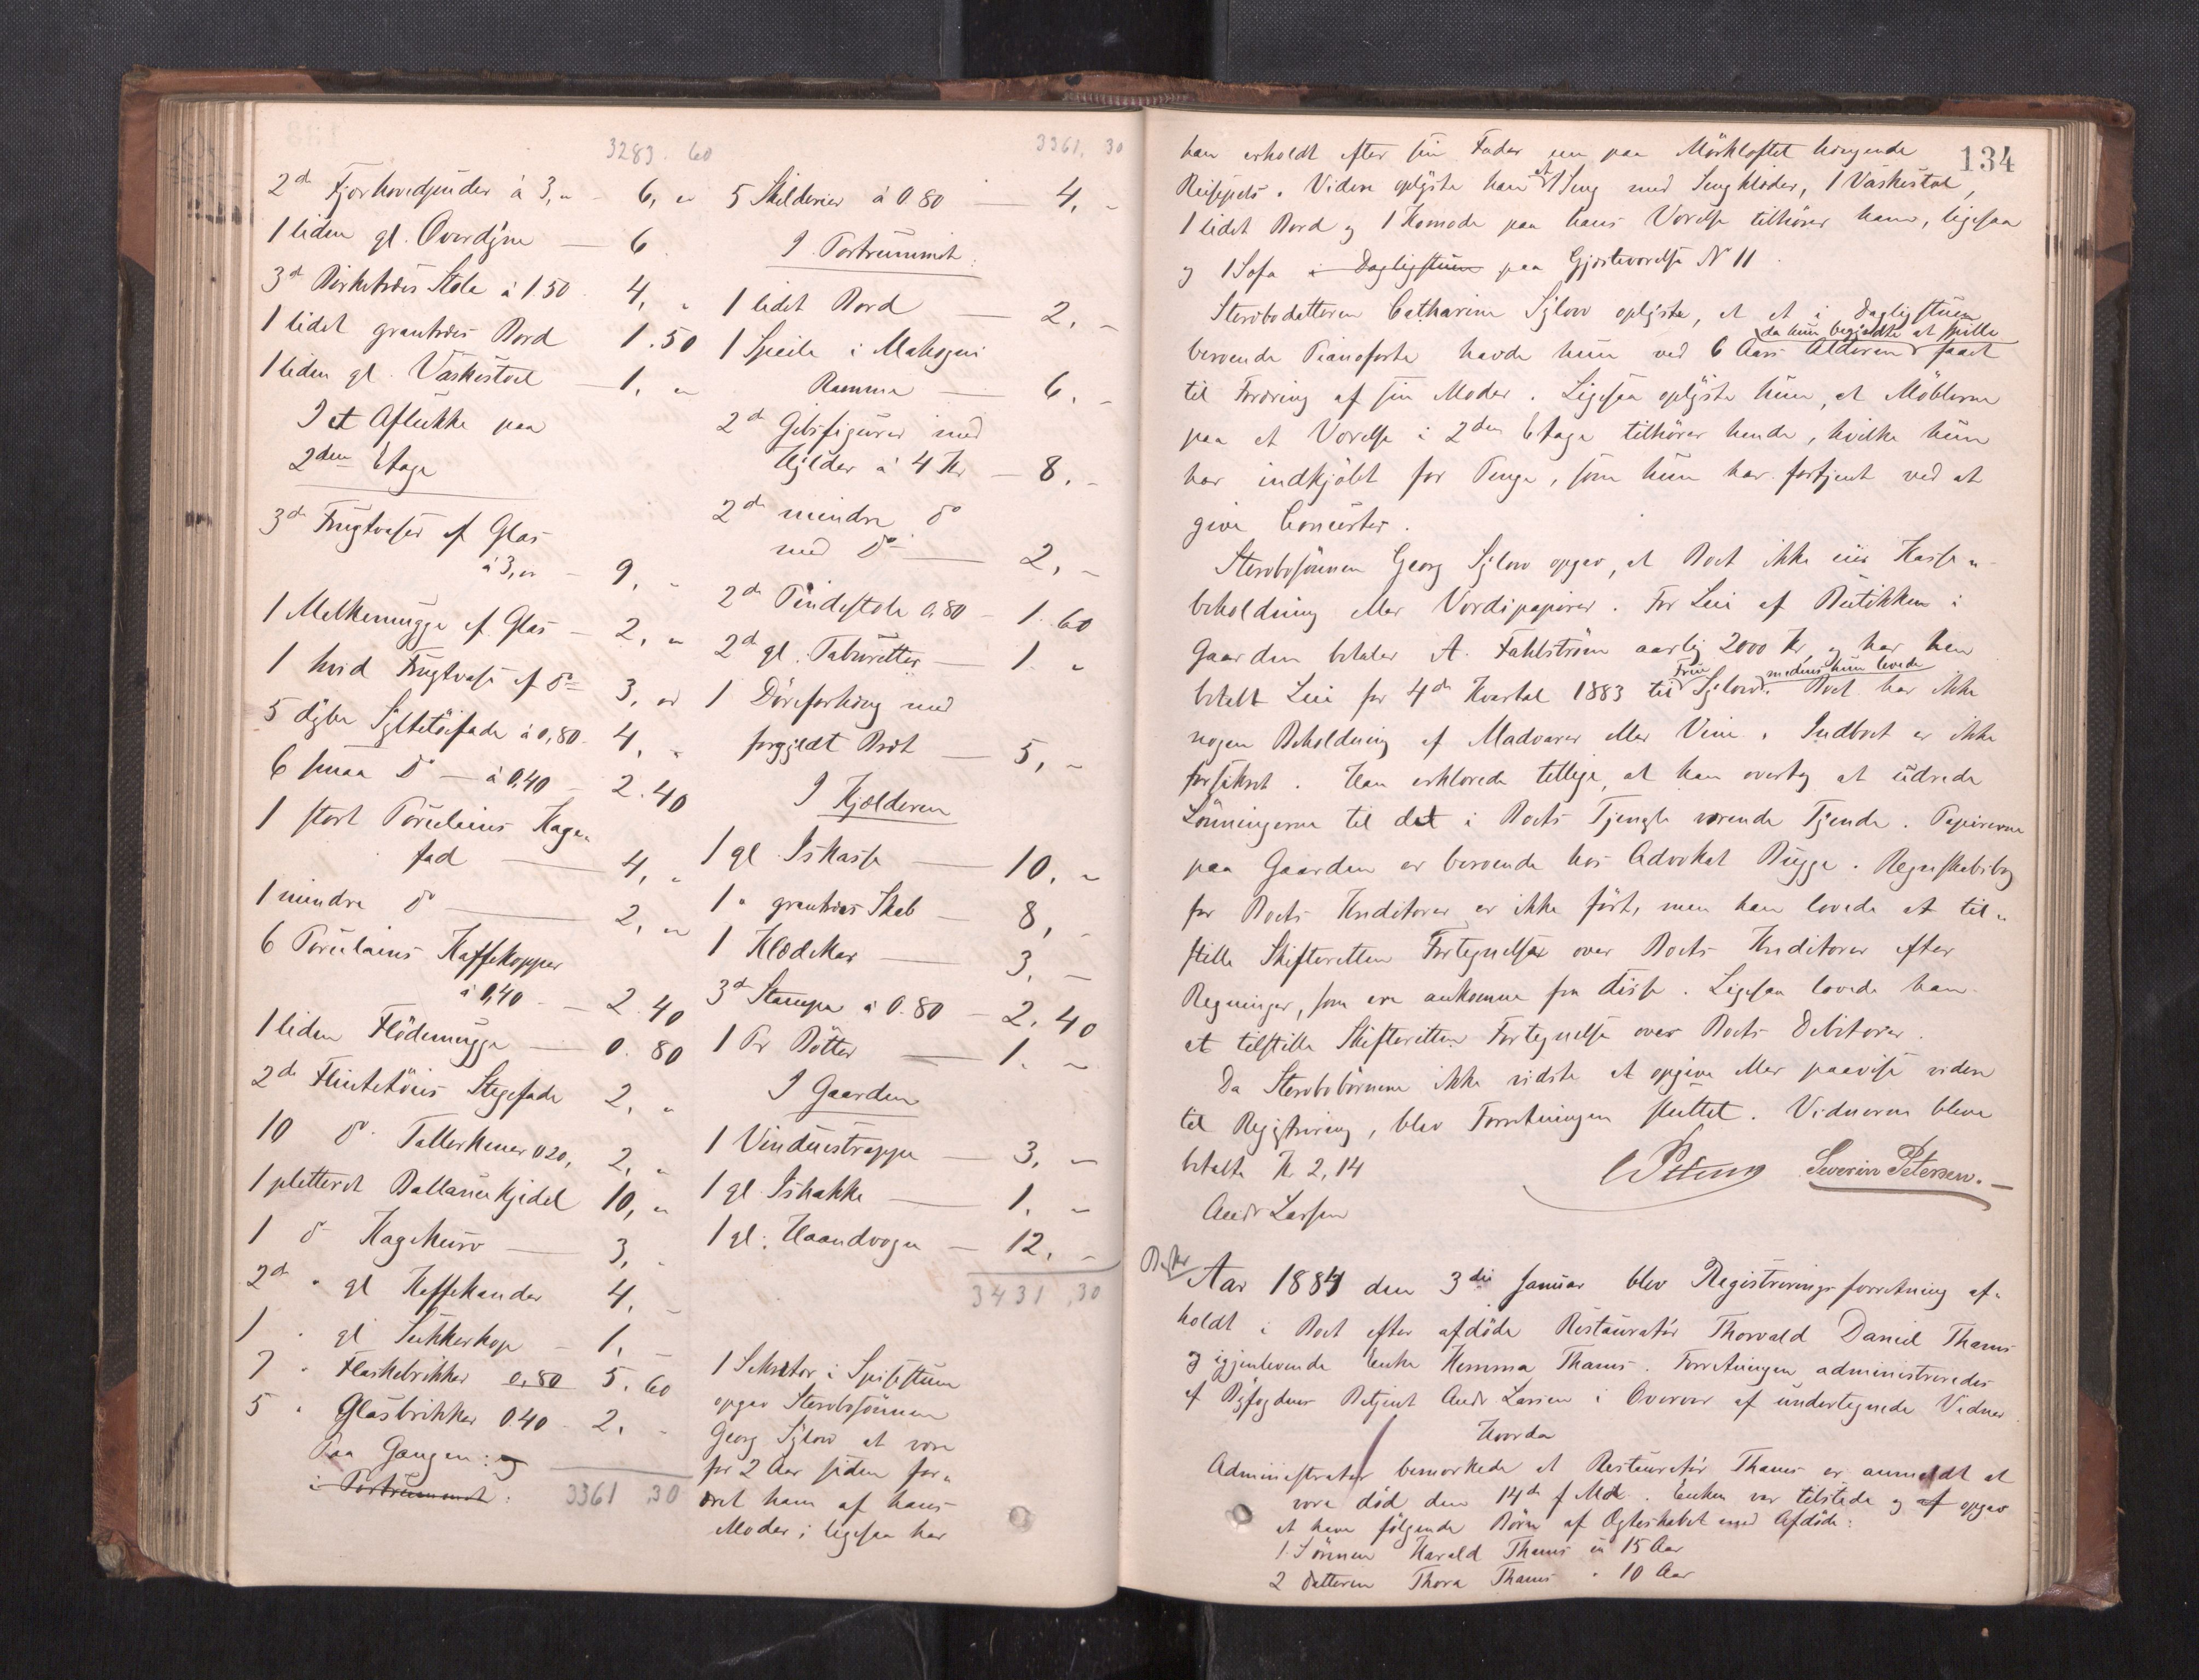 3283. 60
2de Fjærhovedpuder à 3,„ – 6, „
1 liden gl. Overdyne — 6
3de Birketræes Stole à 1.50 4, „
1 lidet grantræes Bord 1.50
1 liden gl. Vaskestol — 1, „
I et Aflukke paa
2den Etage
3de Frugtvaser af Glas
à 3, „ – 9, „
1 Melkemugge af Glas – 2, „
1 hvid Frugtvase af do 3, „
5 dybe Syltetöifade à 0,80. 4, „
6 smaa do — à 0,40 – 2.40
1 stort Porcelains Kage„
fad — 4, „
1 mindre do — 2, „
6 Porcelains Kaffekopper
à 0,40 – 2.40
1 liden Flödemugge — 0.80
2de Flintetöies Stegefade 2, „
10 do. Tallerkener 0 20, 2, „
1 pletteret Ballancekjedel 10, „
1 do Kagekurv — 3, „
2de „ gl Kaffekander 4, „
1 „ gl Sukkerkop – 1, –
7 „ Flaskebrikker 0,80 5.60
5 „ Glasbrikker 0.40 – 2. „
Paa Gangen: og
i Portrummet:
3361,30
3361, 30
5 Skilderier à 0 80 — 4, –
I Portrummet:
1 lidet Bord — 2, –
1 Speile i Mahogni
Ramme — 6, –
2de Gibsfigurer med
Hylder à 4 Kr — 8, –
2de mindre do
med do — 2, –
2de Pindestole 0,80 – 1.60
2de gl. Taburetter — 1. „
1 Döreforhæng med
forgyldt Bret — 5, –
I Kjælderen
1 gl. Iskasse — 10, –
1 „ grantræes Skab — 8, –
1 Klædekar — 3, –
3de Stampe à 0.80 – 2.40
1 Pr Bötter — 1. –
I Gaarden
1 Vinduestrappe — 3, –
1 gl. Ishakke — 1. –
1 gl. Haandvogn — 12. –
3431,30
1 Sekretær i Spisestuen
opgav Stervbosönnen
Georg Sylow at være
for 2 Aar siden for„
æret ham af hans
Moder; ligesaa har
134
han erholdt efter sin Fader en paa Mörkloftet hængende
Reisepels. Videre oplyste han at 1 Seng med Sengklæder, 1 Vaskestol,
1 lidet Bord og 1 Komode paa hans Værelse tilhörer ham, ligesaa
og 1 Sofa i Dagligstuen paa Gjesteværelse No 11.
Stervbodatteren Catharine Sylow oplyste, at et i Dagligstuen
beroende Pianoforte havde hun ved 6 Aars Alderen da hun begyndte at spille faaet
til Foræring af sin Moder. Ligesaa oplyste hun, at Möblerne
paa et Værelse i 2den Etage tilhörer hende, hvilke hun
har indkjöbt for Penge, som hun har fortjent ved at
give Concerter.
Stervbosönnen Georg Sylow opgav, at Boet ikke eier Kasse„
beholdning eller Værdipapirer. For Leie af Butikken i
Gaarden betaler A. Fahlström aarlig 2000 Kr, og har han
betalt Leie for 4de Kvartal 1883 til Frue Sylow, medens hun levede. Boet har ikke
nogen Beholdning af Madvarer eller Vine. Indboet er ikke
forsikret. Han erklærede tillige, at han overtog at udrede
Lönningerne til det i Boets Tjeneste værende Tjende. Papirerne
paa Gaarden er beroende hos Advokat Bugge. Regnskabsbog
for Boets Kreditorer er ikke fört, men han lovede at til„
stille Skifteretten Fortegnelse over Boets Kreditorer efter
Regninger, som ere ankomne fra disse. Ligesaa lovede han
at tilstille Skifteretten Fortegnelse over Boets Debitorer.
Da Stervbobörnene ikke vidste at opgive eller paavise videre
til Registrering, blev Forretningen sluttet. Vidnerne bleve
betalte Kr 2,14
Severin Petersen.
Andr Larsen
Aar 1884 den 3die Januar blev Registreringsforretning af„
holdt i Boet efter afdöde Restauratör Thorvald Daniel Thams
og igjenlevende Enke Hemma Thams. Forretningen administreredes
af Byfogdens Betjent Andr Larsen i Overvær af undertegnede Vidner.
Hvorda
Administrator bemærkede at Restauratör Thams er anmeldt at
være död den 14de f Md. Enken var tilstede og af opgav
at have fölgende Börn af Ægteskabet med Afdöde:
1. Sönnen Harald Thams er 15 Aar
2 Datteren Thora Thams „ 10 Aar